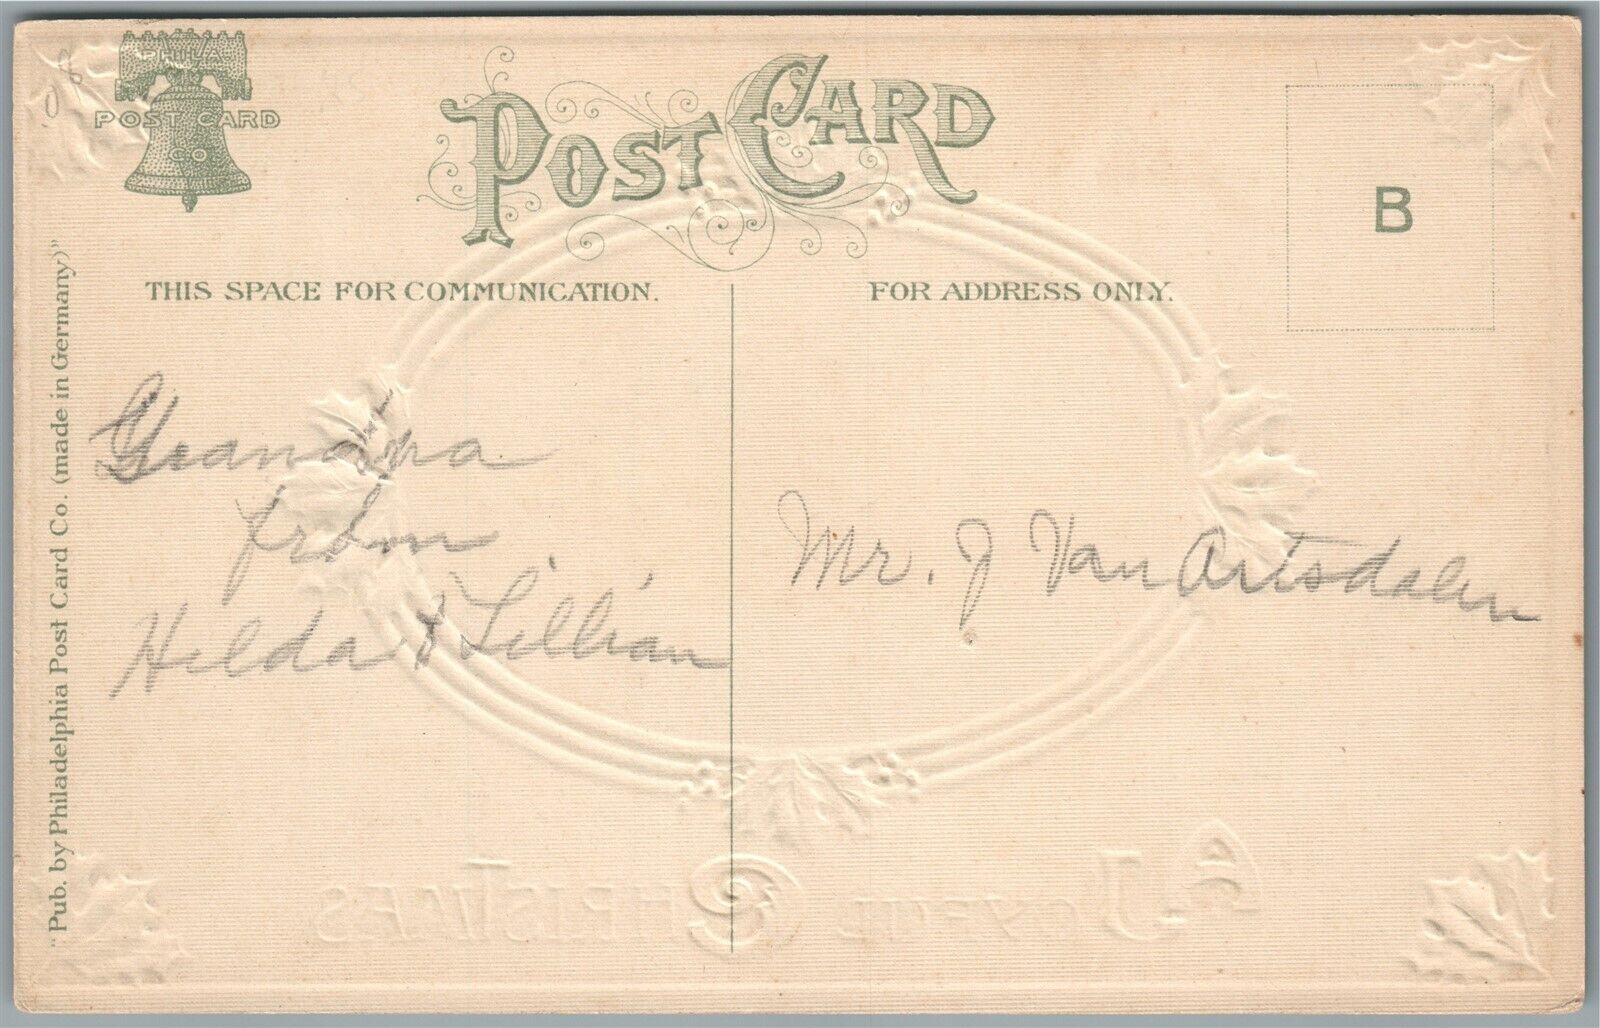 PHILA
POST CARD
CO
POST CARD
B
THIS SPACE FOR COMMUNICATION.
FOR ADDRESS ONLY.
"Pub. by Philadelphia Post Card Co. (made in Germany)"
Grandpa
from
Hilda & Lillian
Mr. J Van Artsdalen
A JOYFUL CHRISTMAS